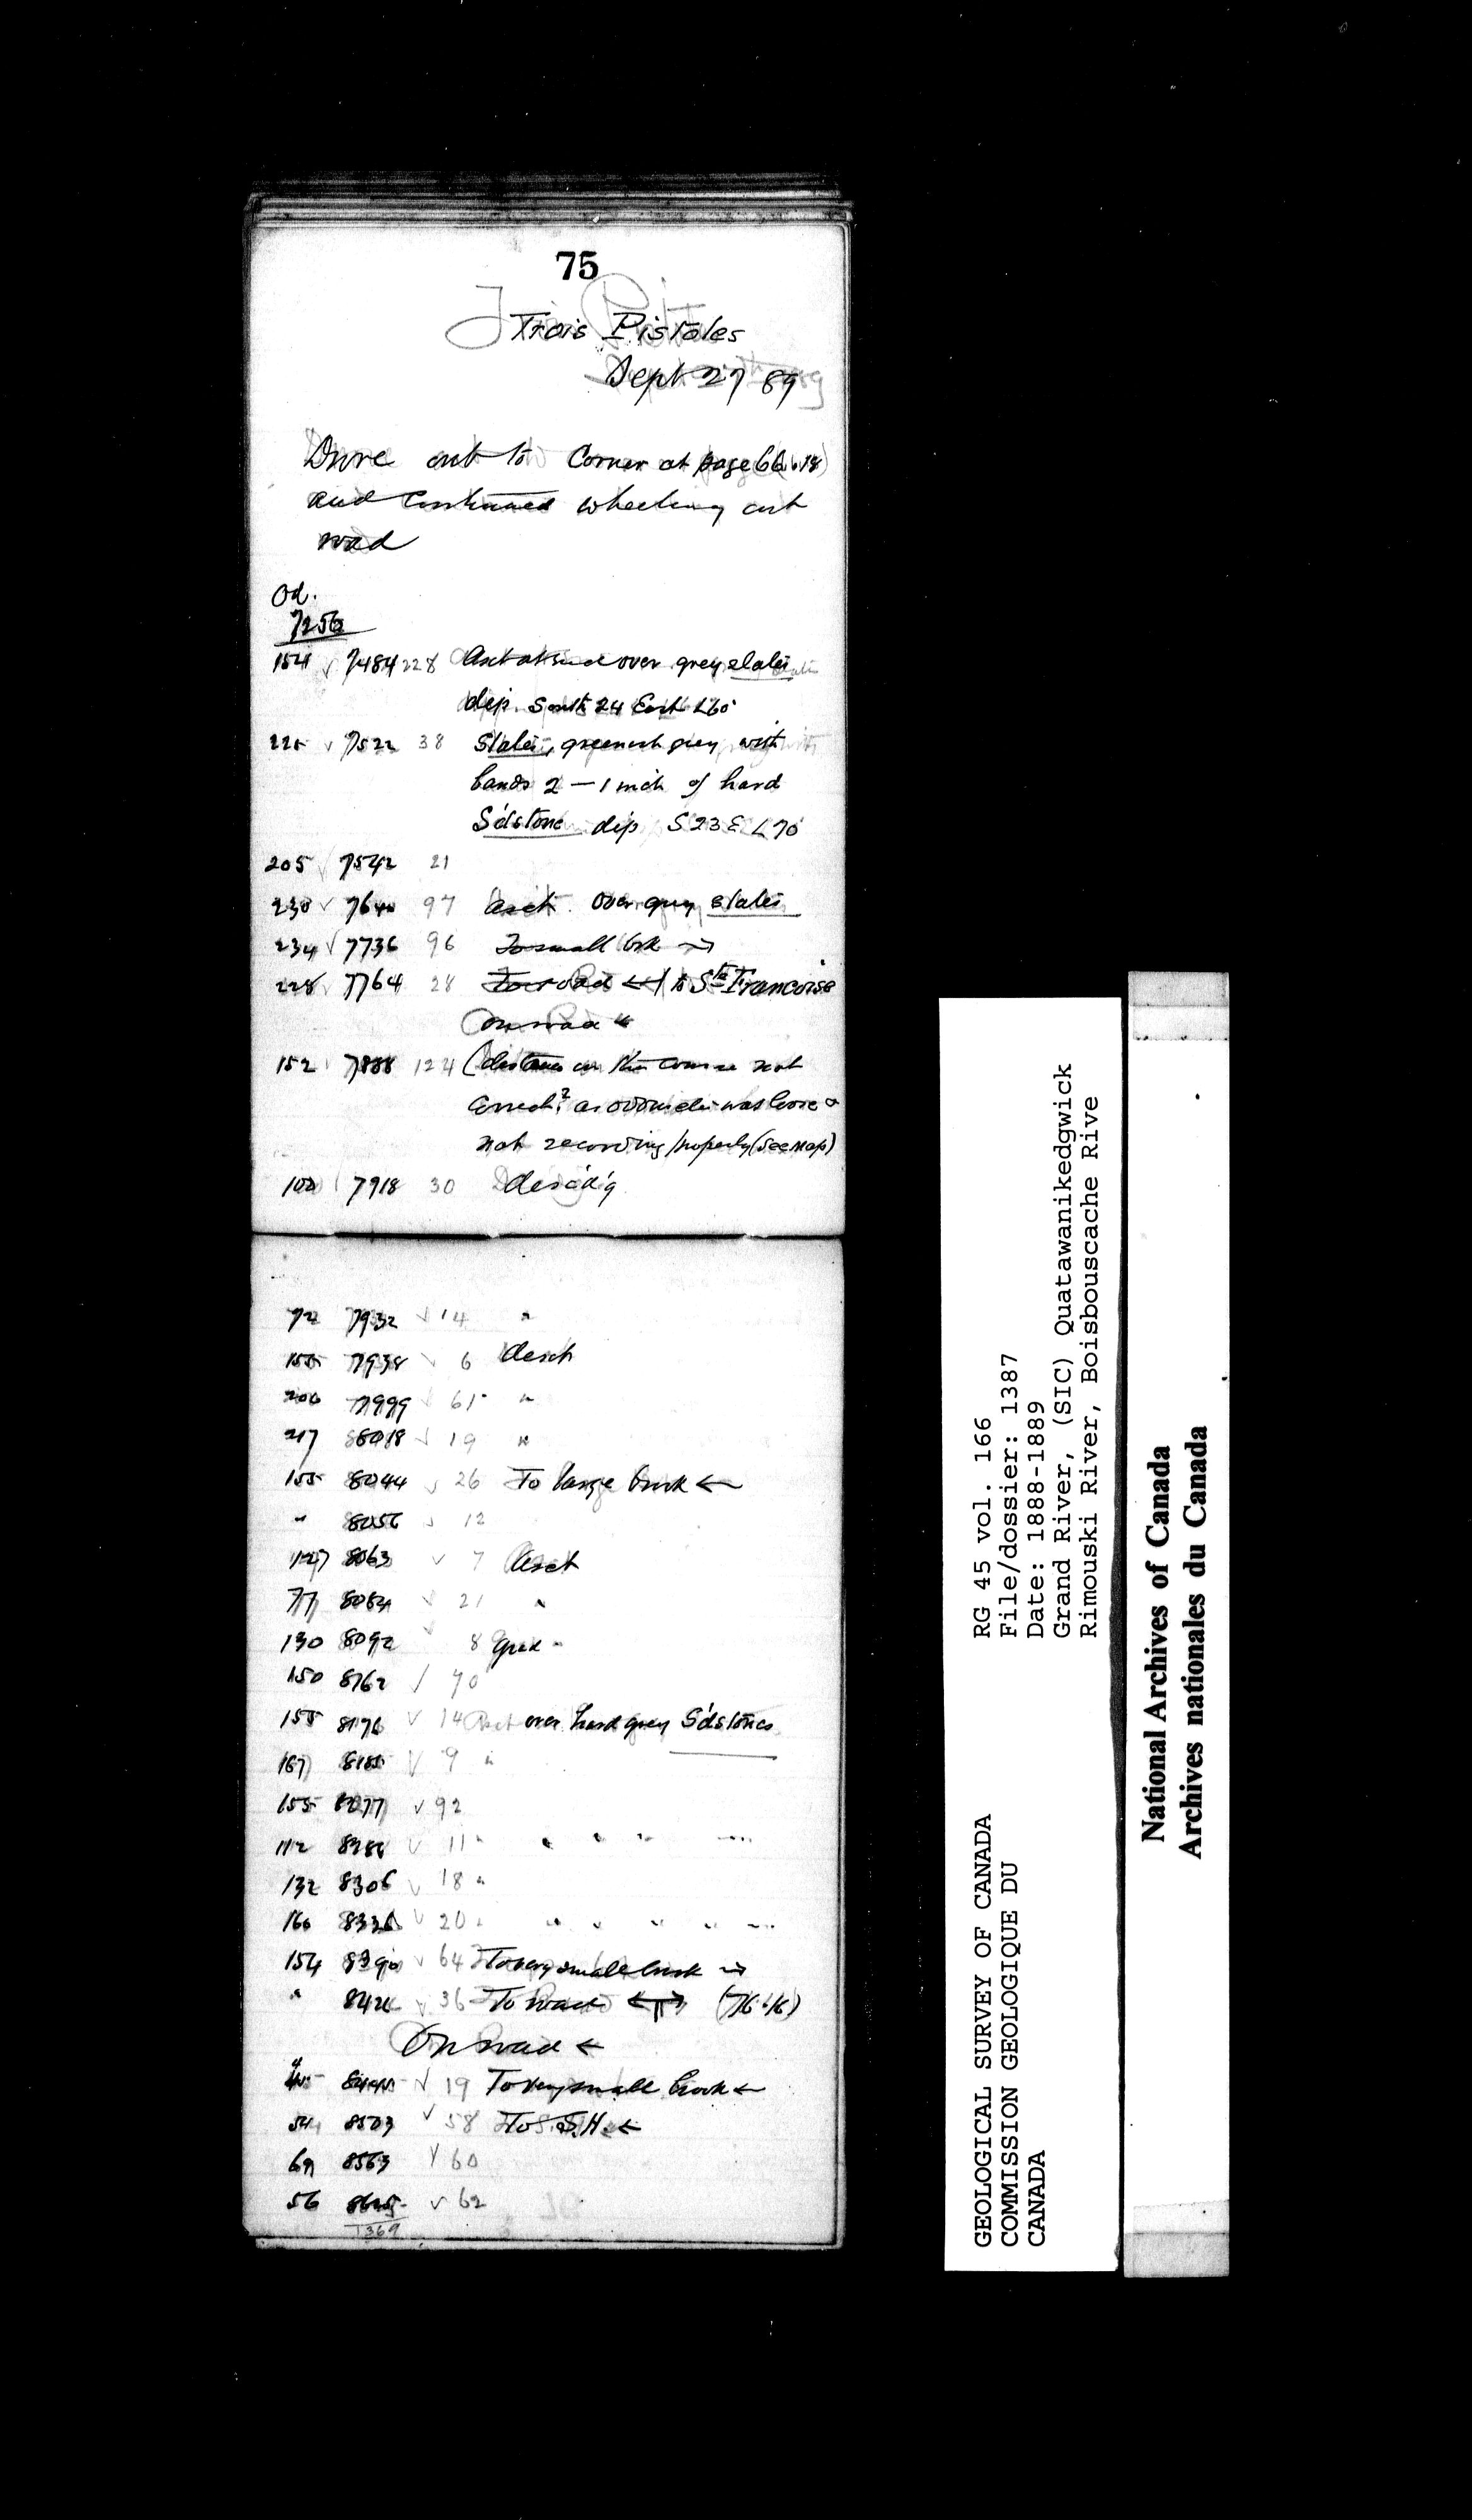 75
Trois Pistoles
Sept 27 89
Drove out to Corner at page 66
and Continued wheeling out
road
Od.
7256
154 √ 7484 228 Asct over grey slates
dip. South 24 East L60°
225 √ 7522 38 Slates, greenish grey with
bands 2 — 1 inch of hard
S'dstone dip S23E L70°
205 √ 7542 21
230 √ 7640 97 asct. over grey slates
234 √ 7736 96 To small brk →
228 7764 28 To road ← to Ste Francoise
On road "
152 7888 124 (distance on this course not
correct? as odometer was loose &
not recording properly (see map)
100 7918 30 desc'd'g
72 7932 √ 14 "
155 7938 √ 6 desct
206 7999 61 "
217 8018 √ 19 "
155 8044 √ 26 To large brook ←
" 8056 √ 12
127 8063 √ 7 Asct
77 8084 √ 21 "
130 8092 √ 8 "
150 8162 / 70
155 8176 √ 14 Asct over hard grey S'dstones
167 8185 √ 9 "
155 8277 √ 92
112 8288 √ 11 " " " " "
132 8306 √ 18 "
160 8326 √ 20 " " " " " "
154 8390 √ 64 To very small brook →
" 8426 √ 36 To road ←→ (76.16)
On road ←
45 8445 √ 19 To very small brook ←
54 8503 √ 58 To S.H. ←
69 8563 √ 60
56 8625 √ 62
1369
GEOLOGICAL SURVEY OF CANADA
COMMISSION GEOLOGIQUE DU
CANADA
RG 45 vol. 166
File/dossier: 1387
Date: 1888-1889
Grand River, (SIC) Quatawanikedgwick
Rimouski River, Boisbouscache Rive
National Archives of Canada
Archives nationales du Canada